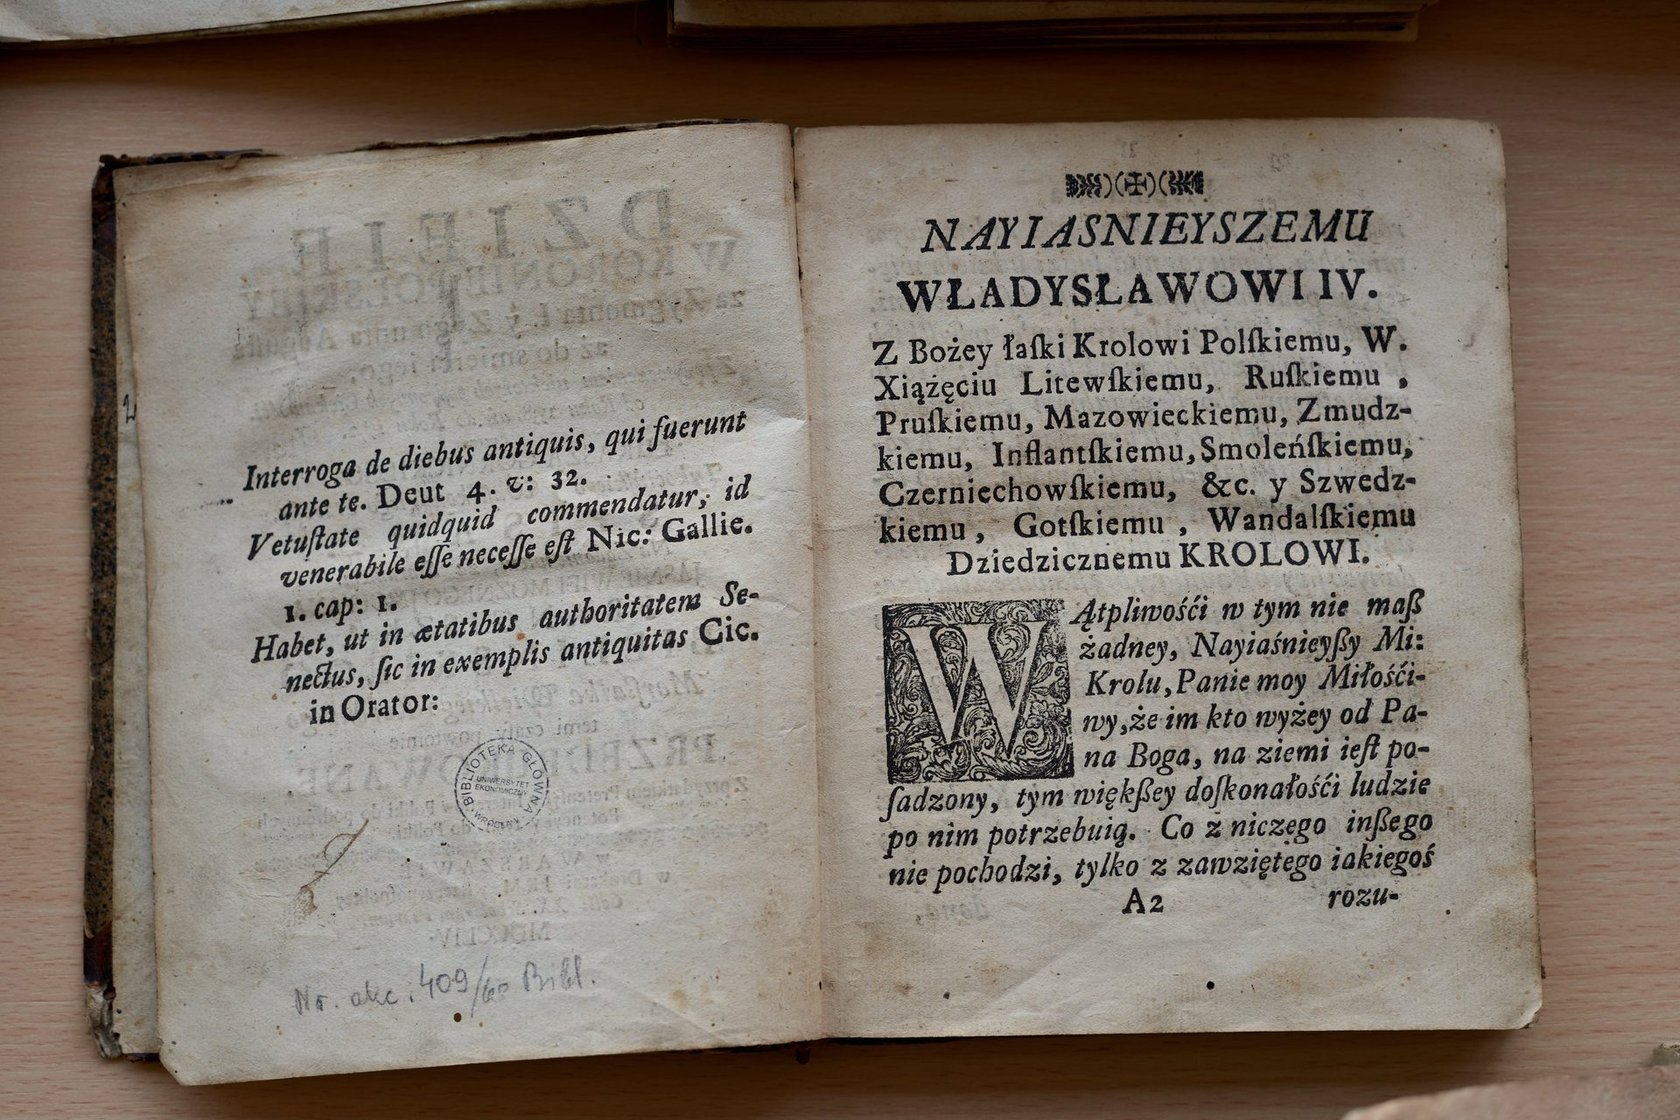 Interroga de diebus antiquis, qui fuerunt
ante te. Deut 4. v: 32.
Vetuſtate quidquid commendatur, id
venerabile eſſe neceſſe eſt Nic: Gallic.
1. cap: 1.
Habet, ut in ætatibus authoritatem Se-
nectus, ſic in exemplis antiquitas Cic.
in Orator:
BIBLIOTEKA GŁÓWNA
UNIWERSYTET
EKONOMICZNY
WROCŁAW
Nr. akc: 409/60 Bibl.
NAYIASNIEYSZEMU
WŁADYSŁAWOWI IV.
Z Bożey łaſki Krolowi Polſkiemu, W.
Xiążęciu Litewſkiemu, Ruſkiemu,
Pruſkiemu, Mazowieckiemu, Zmudz-
kiemu, Inflantſkiemu, Smoleńſkiemu,
Czerniechowſkiemu, &c. y Szwedz-
kiemu, Gotſkiemu, Wandalſkiemu
Dziedzicznemu KROLOWI.
WĄtpliwośći w tym nie maß
żadney, Nayiaśnieyßy Mi:
Krolu, Panie moy Miłośći-
wy, że im kto wyżey od Pa-
na Boga, na ziemi ieſt po-
ſadzony, tym więkßey doſkonałośći ludzie
po nim potrzebuią. Co z niczego inßego
nie pochodzi, tylko z zawziętego iakiegoś
A2 rozu-